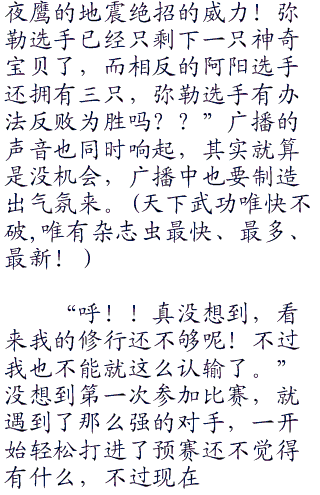 夜鹰的地震绝招的威力！弥
勒选手已经只剩下一只神奇
宝贝了，而相反的阿阳选手
还拥有三只，弥勒选手有办
法反败为胜吗？？”广播的
声音也同时响起，其实就算
是没机会，广播中也要制造
出气氛来。(天下武功唯快不
破,唯有杂志虫最快、最多、
最新！)
“呼！！真没想到，看
来我的修行还不够呢！不过
我也不能就这么认输了。”
没想到第一次参加比赛，就
遇到了那么强的对手，一开
始轻松打进了预赛还不觉得
有什么，不过现在